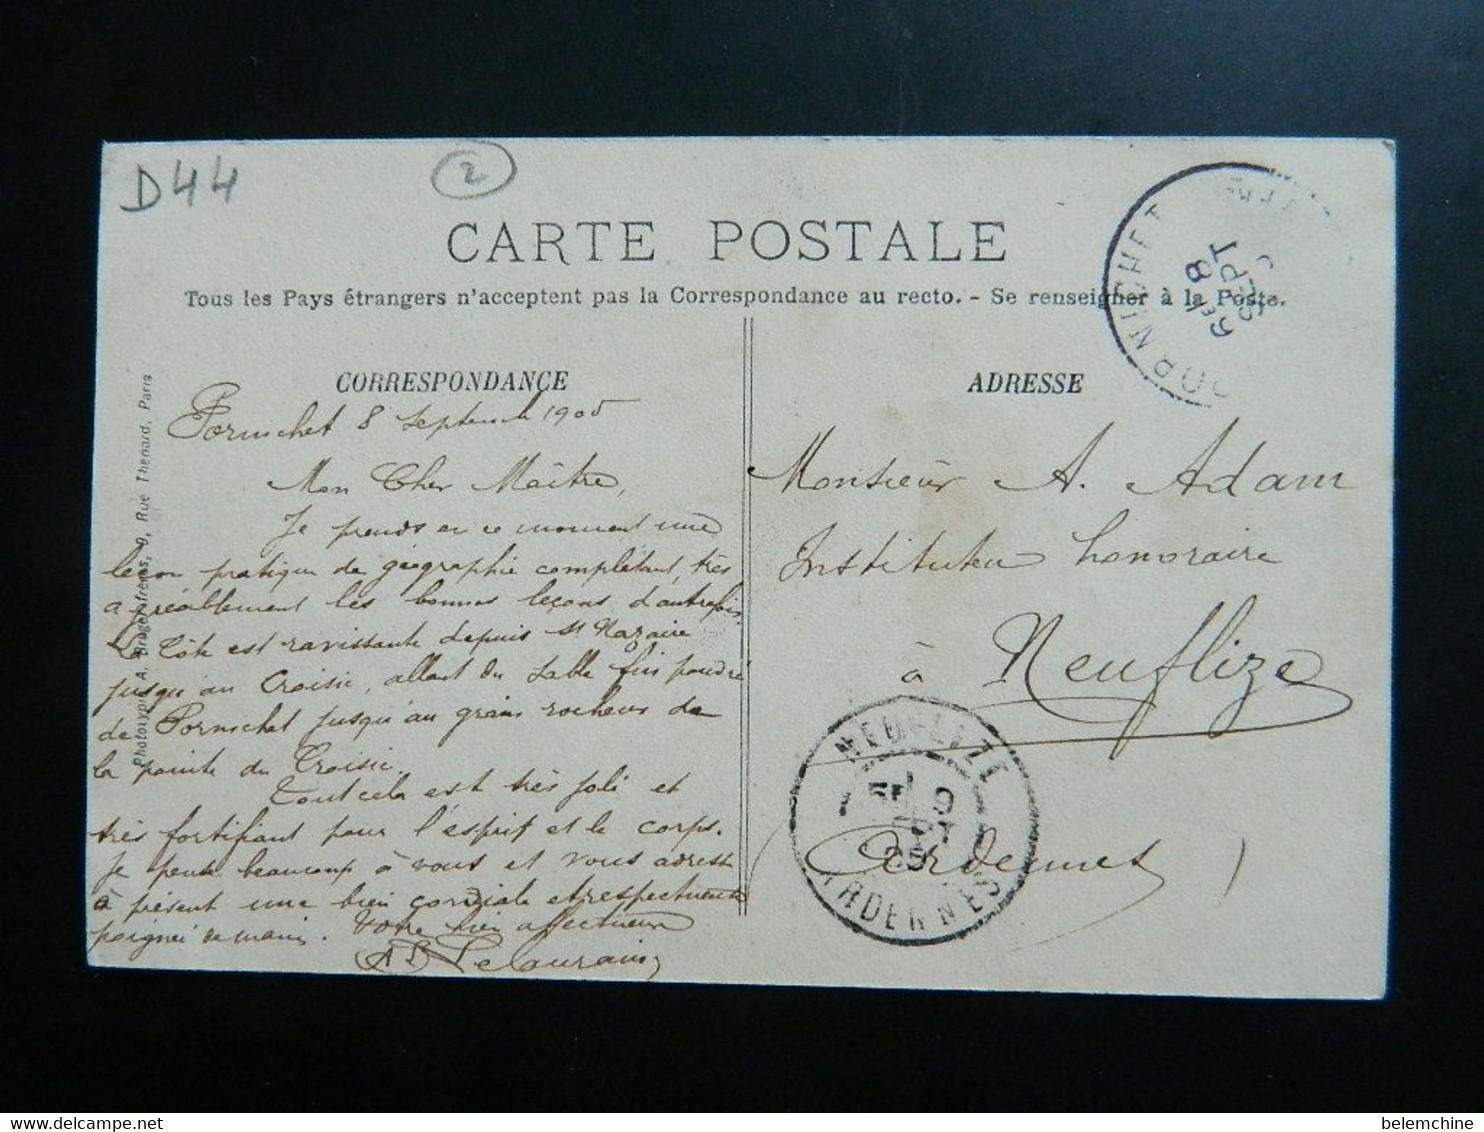 D44
2
CARTE POSTALE
Tous les Pays étrangers n'acceptent pas la Correspondance au recto. - Se renseigner à la Poste.
CORRESPONDANCE
Pornichet 8 Septembre 1905
Mon Cher Maître,
Je prends en ce moment une
leçon pratique de géographie complétant très
agréablement les bonnes leçons d'autrefois.
La Côte est ravissante depuis St Nazaire
jusqu'au Croisic, allant du sable fin poudré
de Pornichet jusqu'au grains rocheux de
la pointe du Croisic.
Tout cela est très joli et
très fortifiant pour l'esprit et le corps.
Je pense beaucoup à vous et vous adresse
à présent une bien cordiale et respectueuse
poignée de main. Votre bien affectueux
Lelaurain
Phototypie A. Bruger frères, 9, Rue Thenard, Paris
ADRESSE
Monsieur A. Adam
Instituteur honoraire
à Neuflize
Ardennes
PORNICHET
8
SEPT
NEUFLIZE
9
05
ARDENNES
belemchine